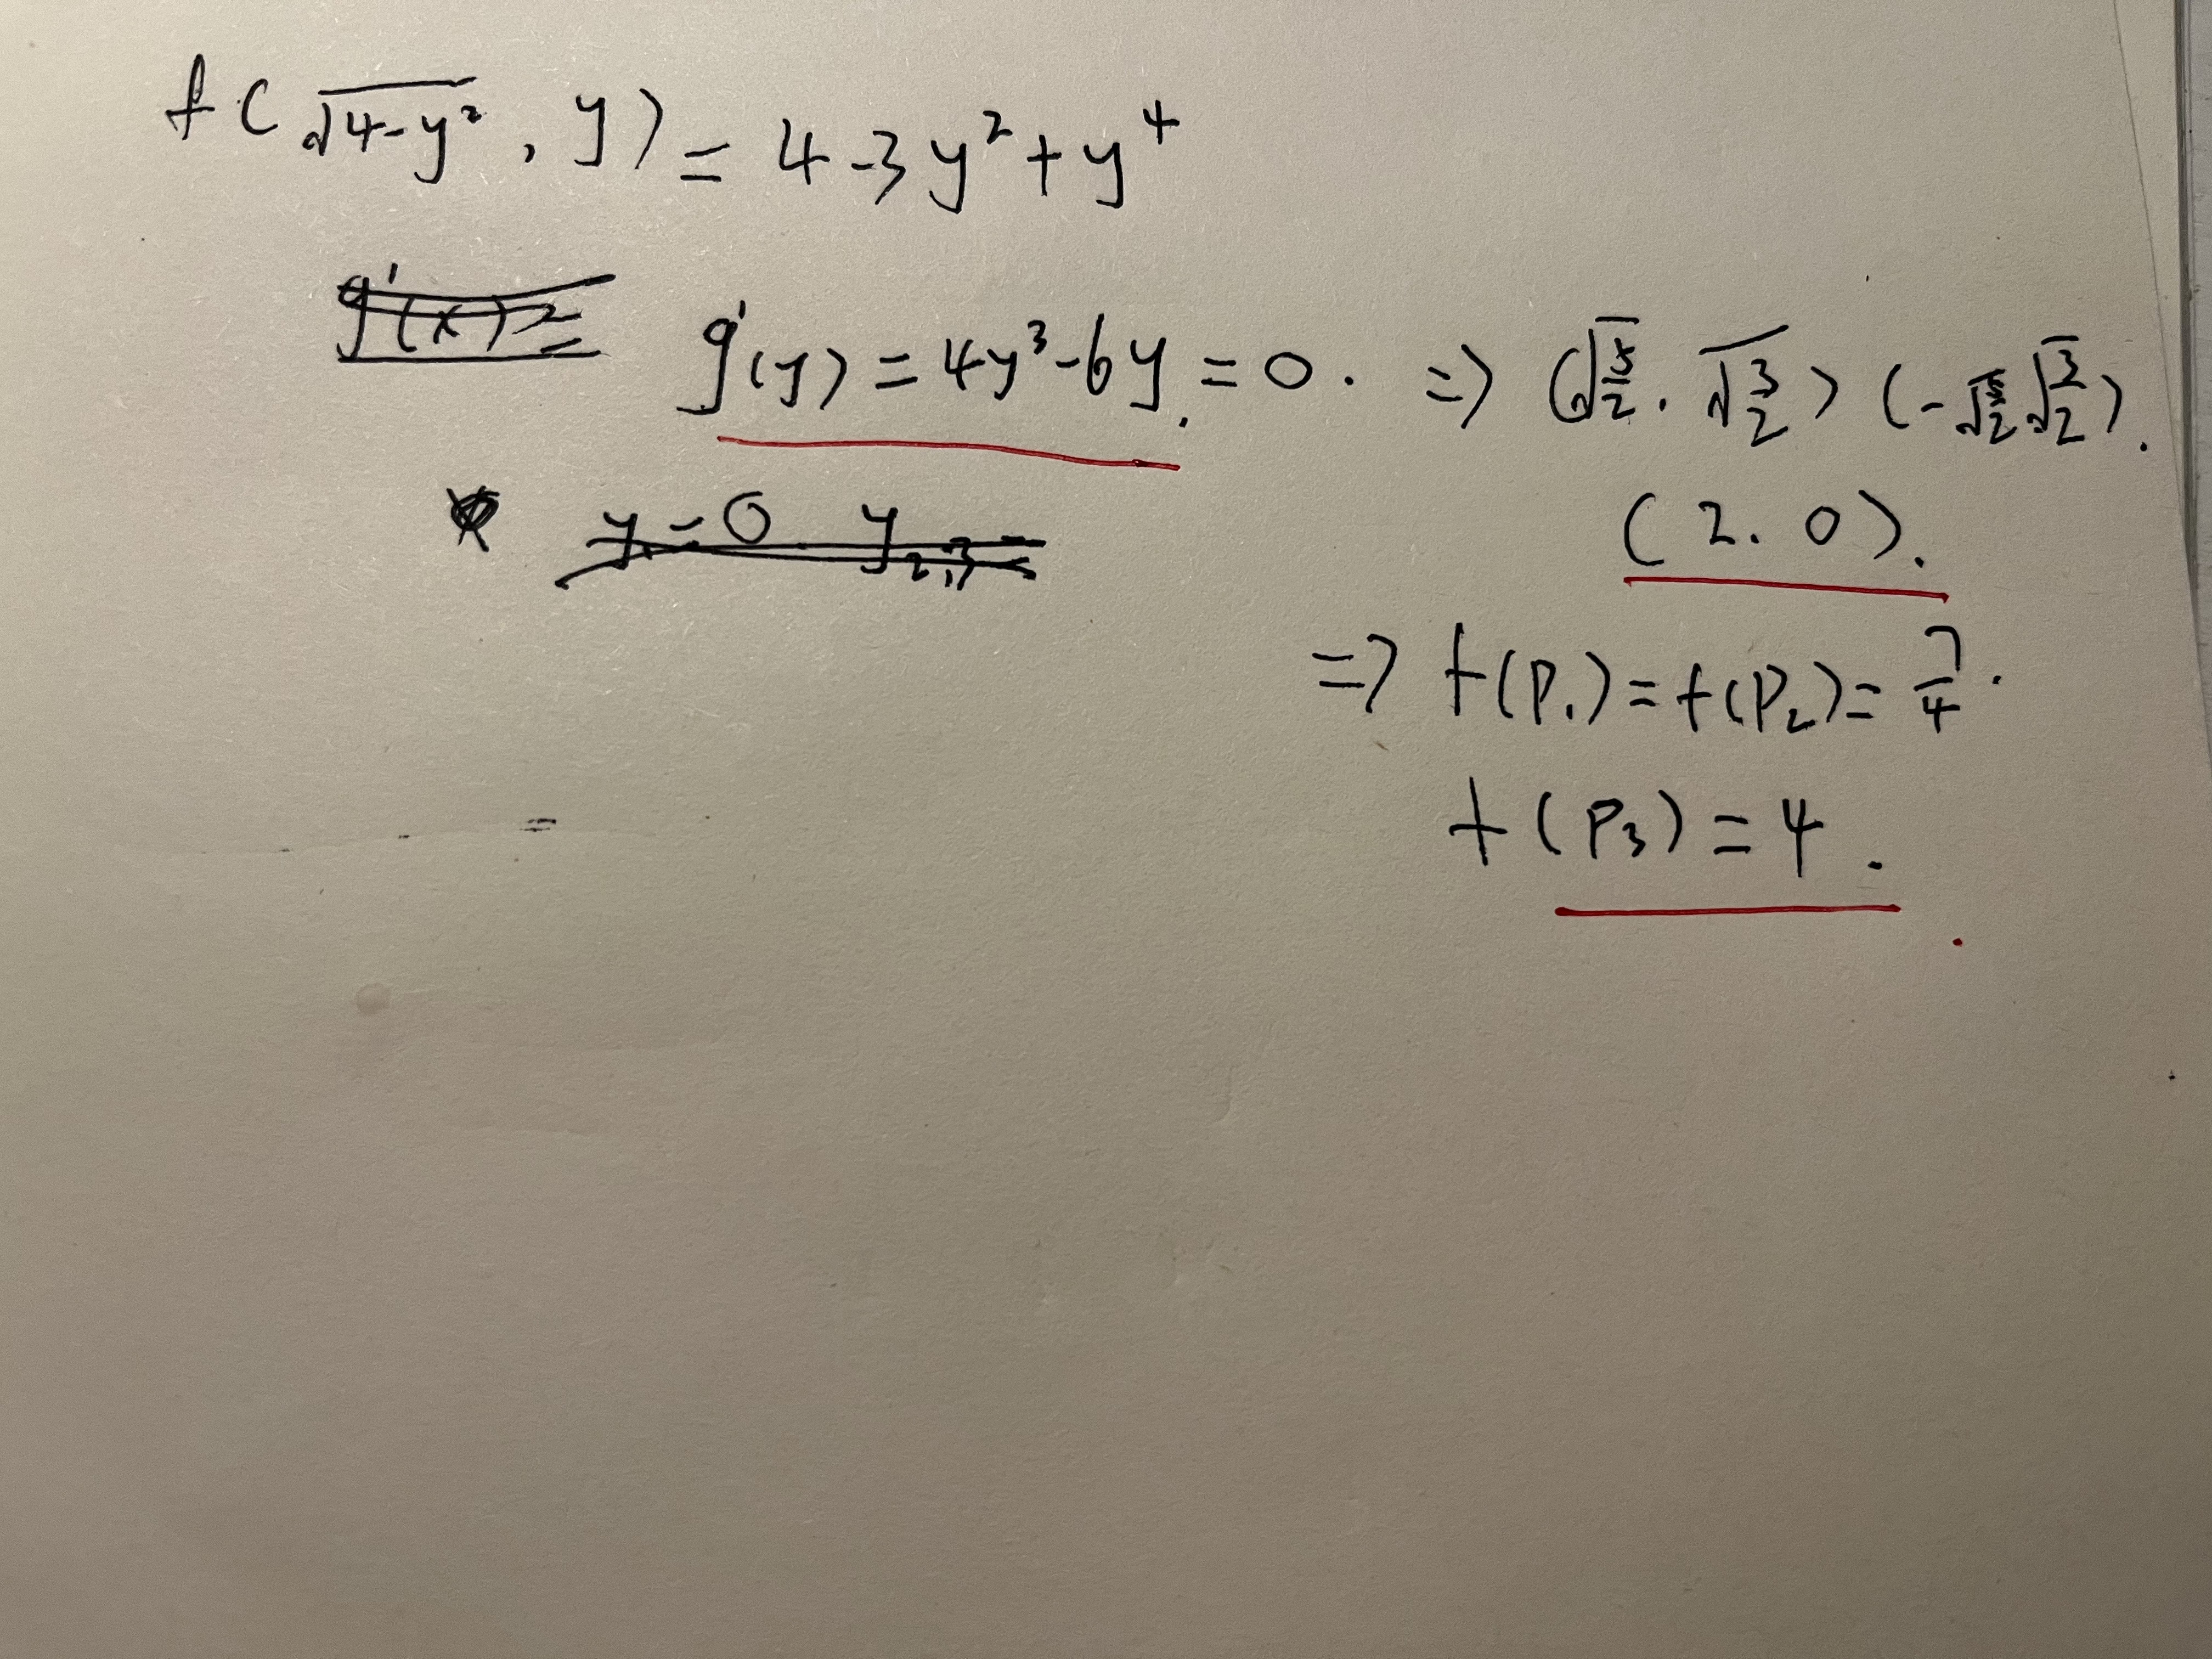 f(√(4-y²), y) = 4-3y²+y⁴
g'(x)=
g'(y) = 4y³-6y = 0. => (√(5/2). √(3/2)) (-√(5/2) √(3/2)).
y=0 y₂,₃=
(2. 0).
=> f(P₁) = f(P₂) = 7/4.
f(P₃) = 4.